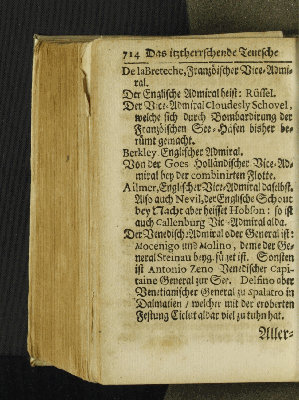 714 Das itztherrschende Teutsche
De la Breteche, Französischer Vice-Admi-
ral.
Der Englische Admiral heist: Rüssel.
Der Vice-Admiral Cloudesly Schovel,
welche sich durch Bombardirung der
Französischen See-Häfen bisher be-
rümt gemacht.
Berkley Englischer Admiral.
Von der Goes Holländischer Vice-Ad-
miral bey der combinirten Flotte.
Ailmer, Englischer Vice-Admiral daselbst.
Also auch Nevil, der Englische Schout
bey Nacht aber heisset Hobson: so ist
auch Callenburg Vic-Admiral alda.
Der Venedisch: Admiral oder General ist:
Mocenigo und Molino, deme der Ge-
neral Steinau beyg. füget ist. Sonsten
ist Antonio Zeno Venedischer Capi-
taine General zur See. Delfino aber
Venetianischer General zu Spalatro in
Dalmatien / welcher mit der eroberten
Festung Ciclut aldar viel zu tuhn hat.
Aller-